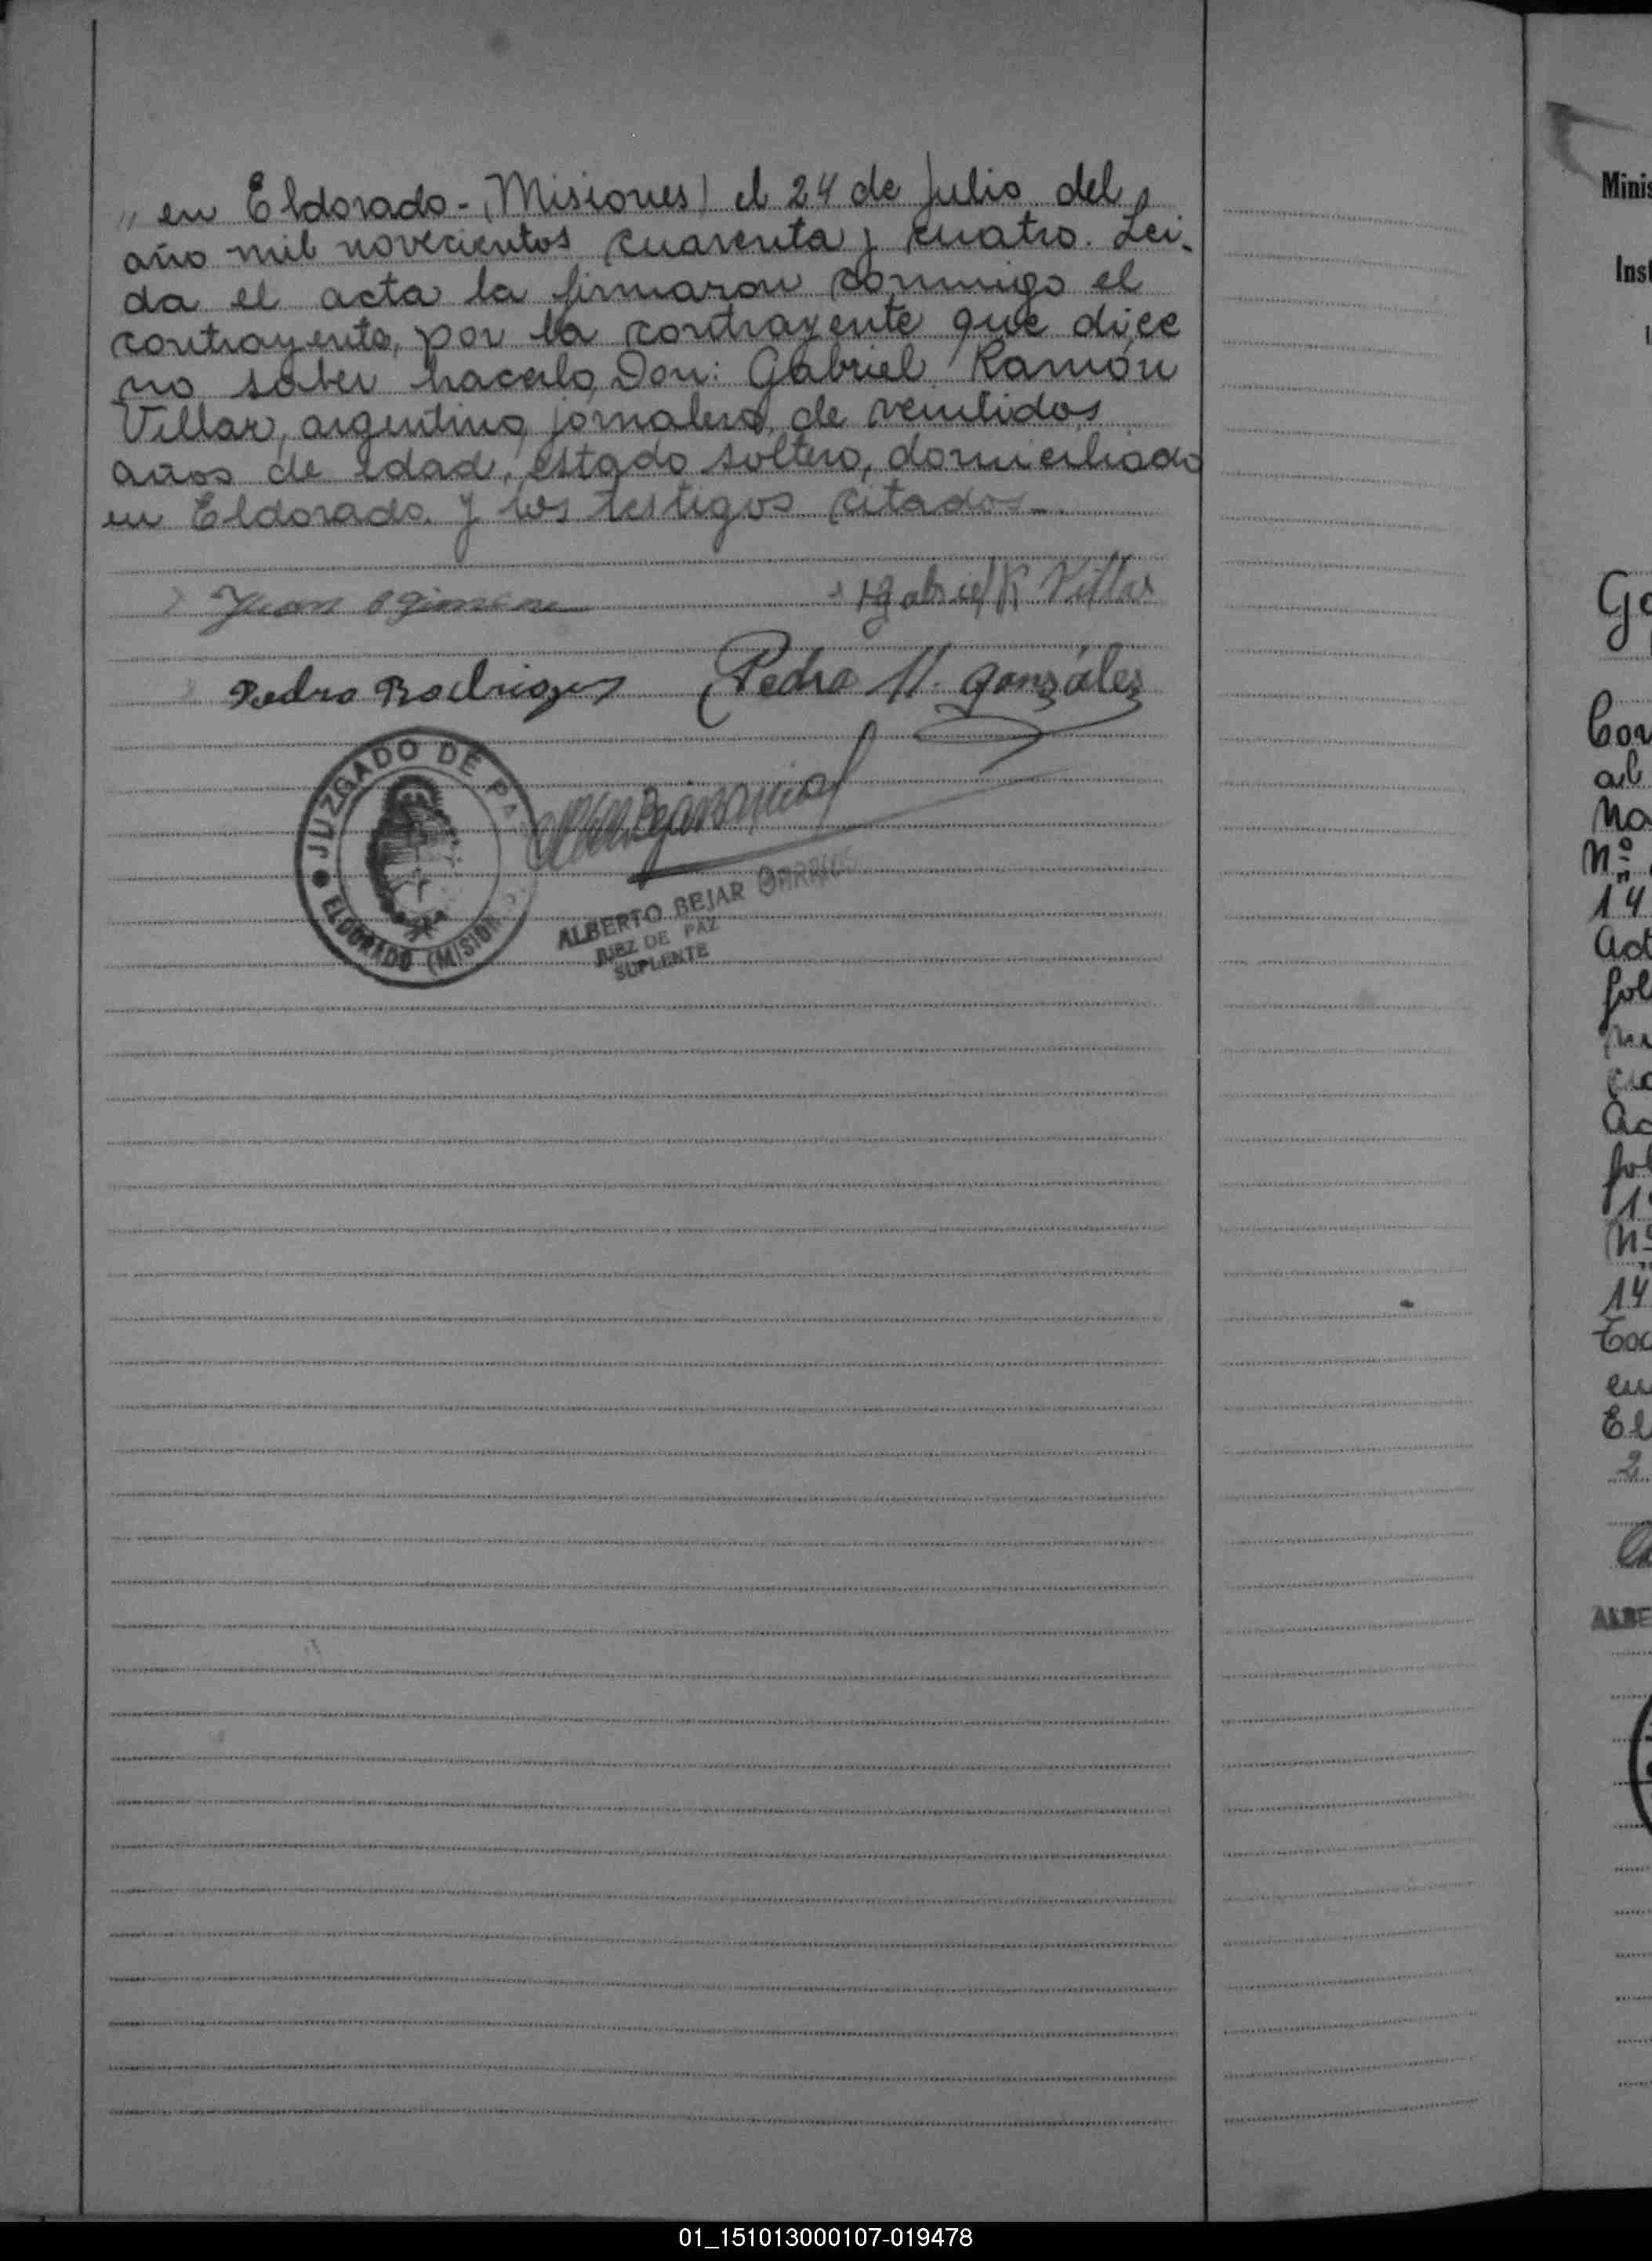 " en Eldorado-(Misiones) el 24 de Julio del
año mil novecientos cuarenta y cuatro. Lei-
da el acta la firmaron conmigo el
contrayente, por la contrayente que dice
no saber hacerlo, Don: Gabriel Ramón
Villar, argentino, jornalero, de veintidos
años de edad, estado soltero, domiciliado
en Eldorado. y los testigos citados-.
Juan Gimene
Gabriel R Villar
Pedro Rodrigues
Pedro M. González
JUZGADO DE PAZ
ELDORADO (MISION
ALBERTO BEJAR BARRIOS
JUEZ DE PAZ
SUPLENTE
Minis
Inst
Go
Con
al
No
Nº
14
Act
fol
Ac
fol
19
Nº
14
en
El
2
ALBE
01_151013000107-019478